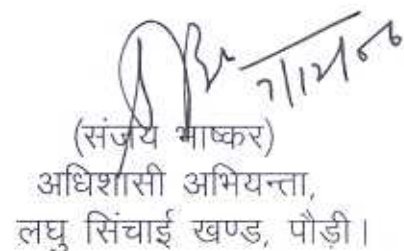 7/12/06
(संजय भाष्कर)
अधिशासी अभियन्ता,
लघु सिंचाई खण्ड, पौड़ी।